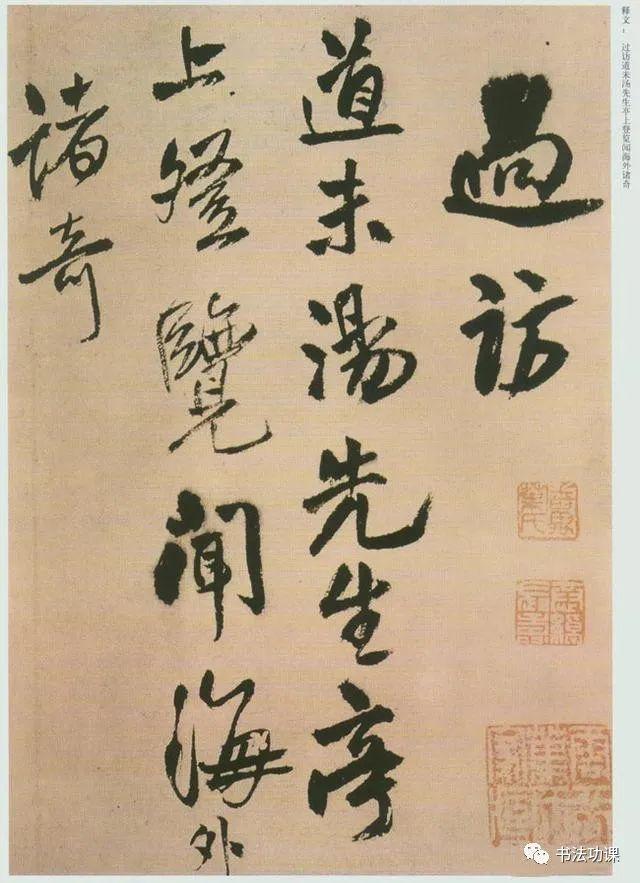 過訪
道未湯先生亭
上登覽聞海外
諸奇
释文：过访道未汤先生亭上登览闻海外诸奇
书法功课